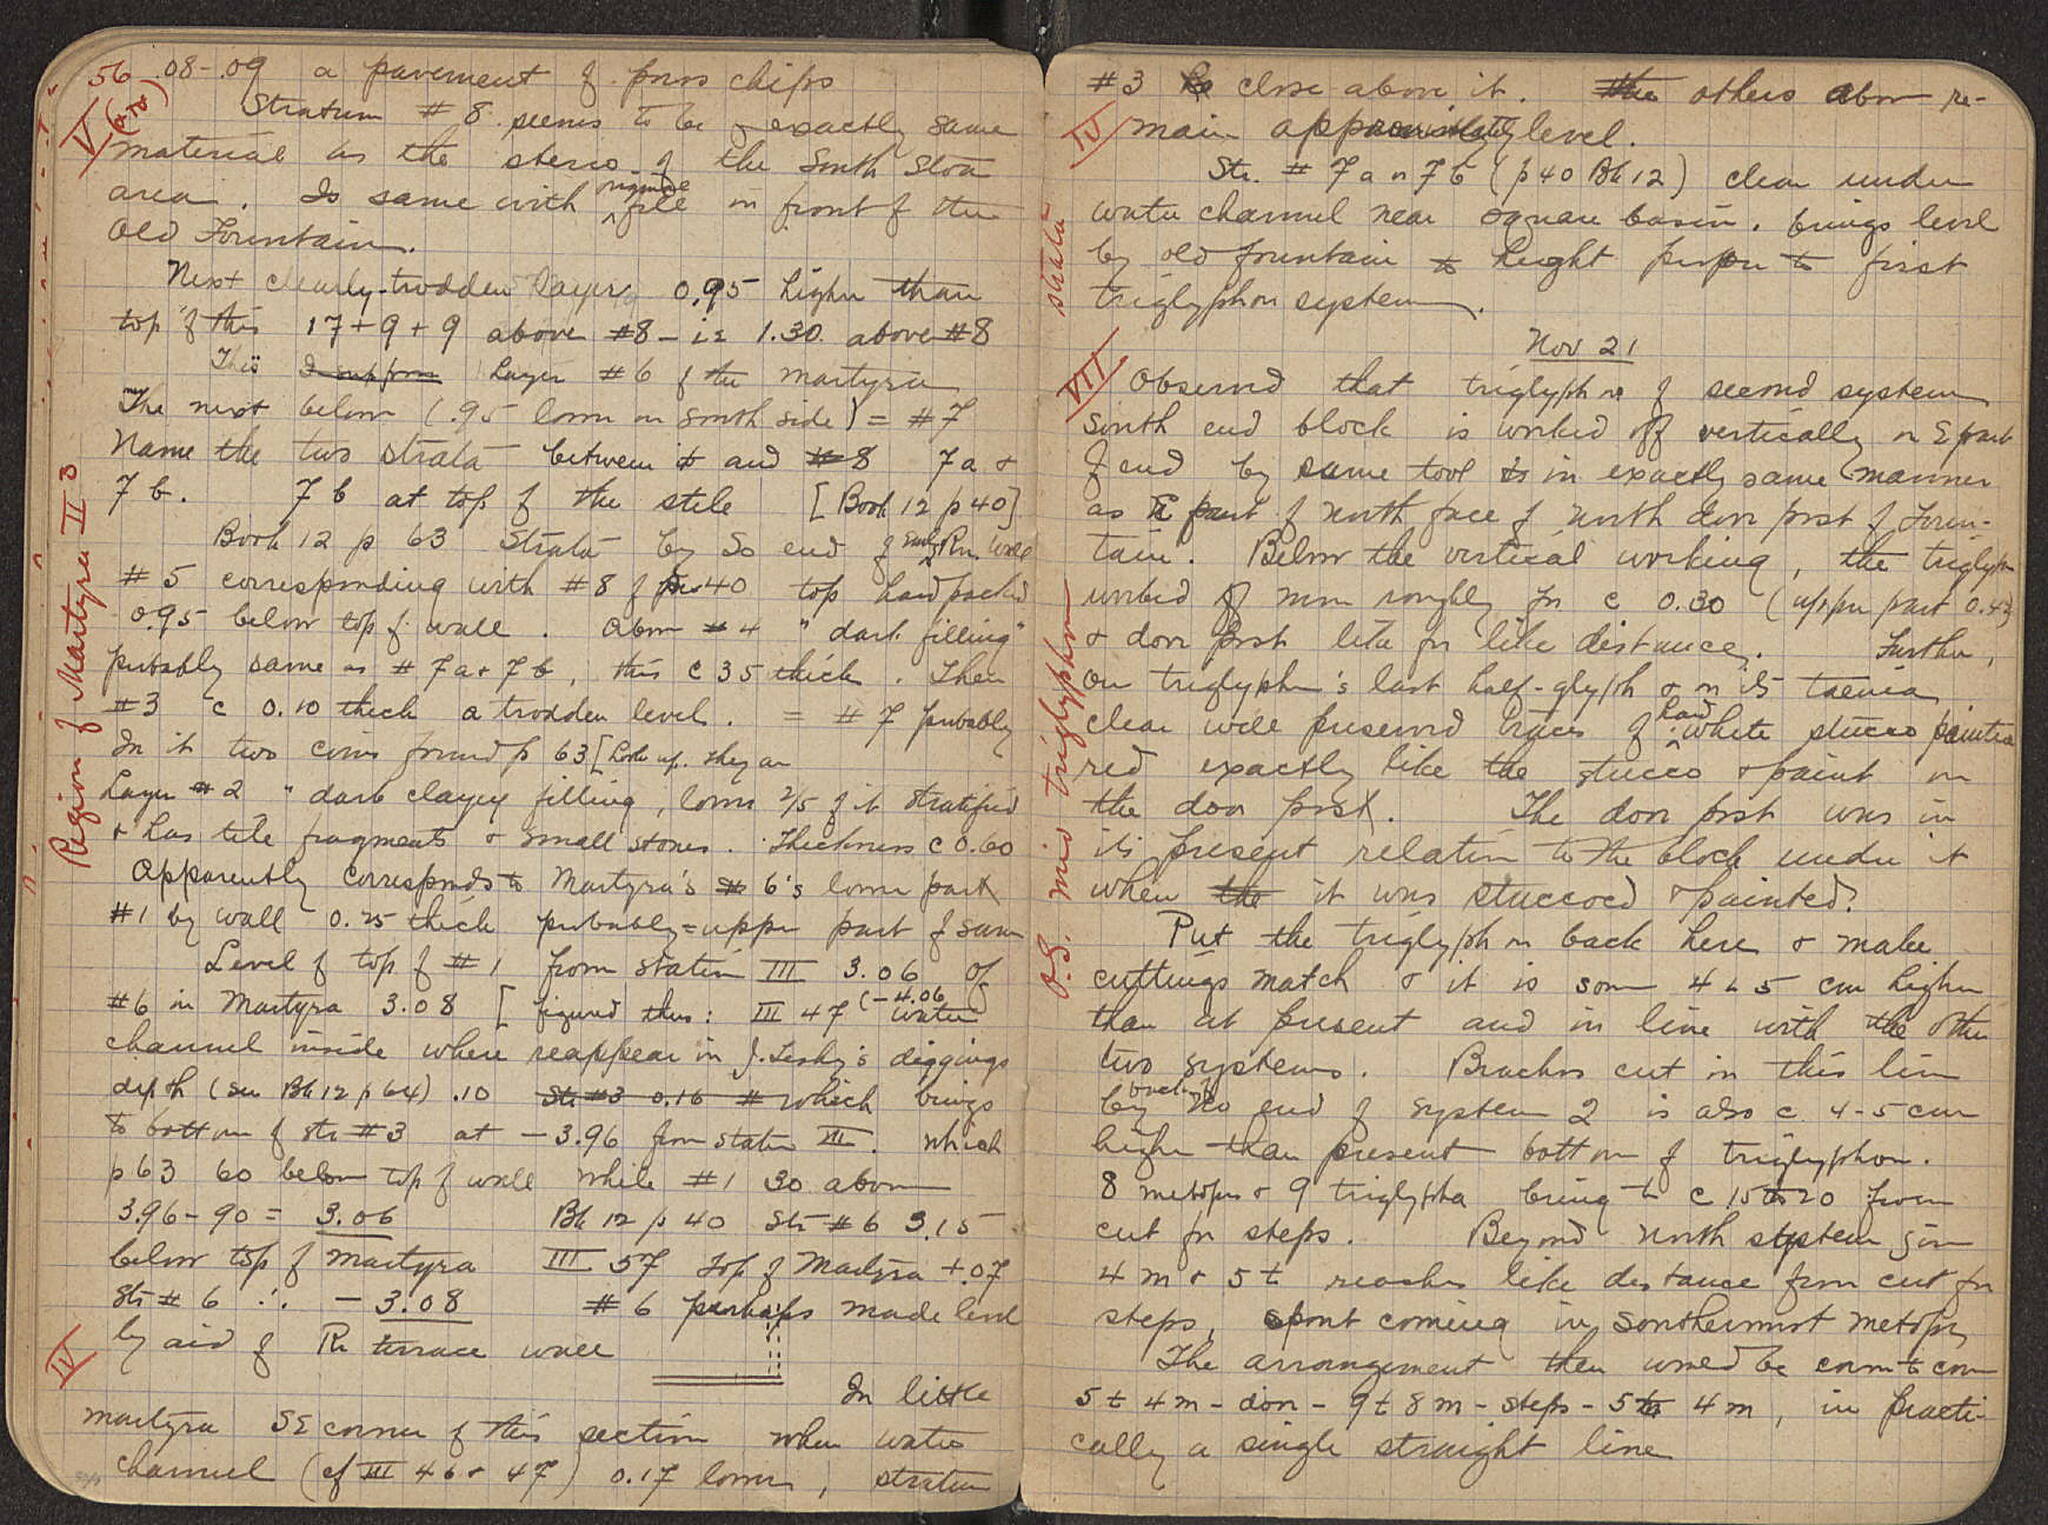 56 .08-.09 a pavement of poros chips
V (& IV)
Stratum #8 seems to be exactly same
material as the stereo of the South Stoa
area. Is same with original fill in front of the
Old Fountain.
Next clearly-trodden layer, 0.95 higher than
top of this 17+9+9 above #8 - is 1.30 above #8
This I suppose Layer #6 of the martyra
The next below (.95 lower on south side) = #7
Name the two strata between it and #8 7a &
7b. 7b at top of the stele [Book 12 p 40]
Book 12 p 63 Strata by So end of early Rn. wall
#5 corresponding with #8 of p 40 top hard packed
0.95 below top of wall. Above #4 "dark filling"
probably same as #7a & 7b, this c 35 thick. Then
#3 c 0.10 thick a trodden level. = #7 probably
In it two coins found p 63 [Look up. They are
Layer #2 "dark clayey filling, lower 2/5 of it stratified
& has tile fragments & small stones. Thickness c 0.60
Apparently corresponds to Martyra's # 6's lower part
#1 by wall 0.25 thick probably = upper part of same
Level of top of #1 from station III 3.06 of
#6 in Martyra 3.08 [figured thus: III 47 (-4.06 water
channel inside where reappear in J. Lesky's diggings
depth (see Bk 12 p 64) .10 Str #3 0.16 # which brings
to bottom of str #3 at -3.96 from station III. which
p 63 60 below top of wall while #1 30 above
3.96-90 = 3.06 Bk 12 p 40 Str #6 3.15
below top of martyra III 57 Top of Martyra +.07
Str #6 ∴ -3.08 #6 perhaps made level
by aid of Rn terrace wall
IV
In little
martyra SE corner of this section when water
channel (cf III 46 & 47) 0.17 lower, stratum
Region of Martyra II 3
#3 is close above it. the others above re-
IV main approximately level.
Str. #7a or 7b (p 40 Bk 12) clear under
water channel near square basin. brings level
by old fountain to height proper to first
triglyphon system.
strata
Nov 21
VII Observed that triglyphon of second system
South end block is worked off vertically on E part
of end by same tool & in exactly same manner
as E part of north face of north door post of Foun-
tain. Below the vertical working, the triglyphon
worked off more roughly for c 0.30 (upper part 0.43
& door post like for like distance. Further,
on triglyphon's last half-glyph & on its taenia
clear well preserved traces of hard white stucco painted
red exactly like the stucco & paint on
the door post. The door post was in
its present relation to the block under it
when the it was stuccoed & painted.
Put the triglyphon back here & make
cuttings match & it is some 4 to 5 cm higher
than at present and in line with the other
two systems. Beaches cut in this line
by No end of system 2 is also c. 4-5 cm
higher than present bottom of triglyphon.
8 metopes & 9 triglypha bring to c 15 to 20 from
cut for steps. Beyond north system given
4 m & 5 t reaches like distance from cut for
steps, spout coming in southernmost metope
The arrangement then would be corner to corner
5 t 4 m - door - 9 t 8 m - steps - 5 t 4 m, in practi-
cally a single straight line
O.S. mid triglyphon